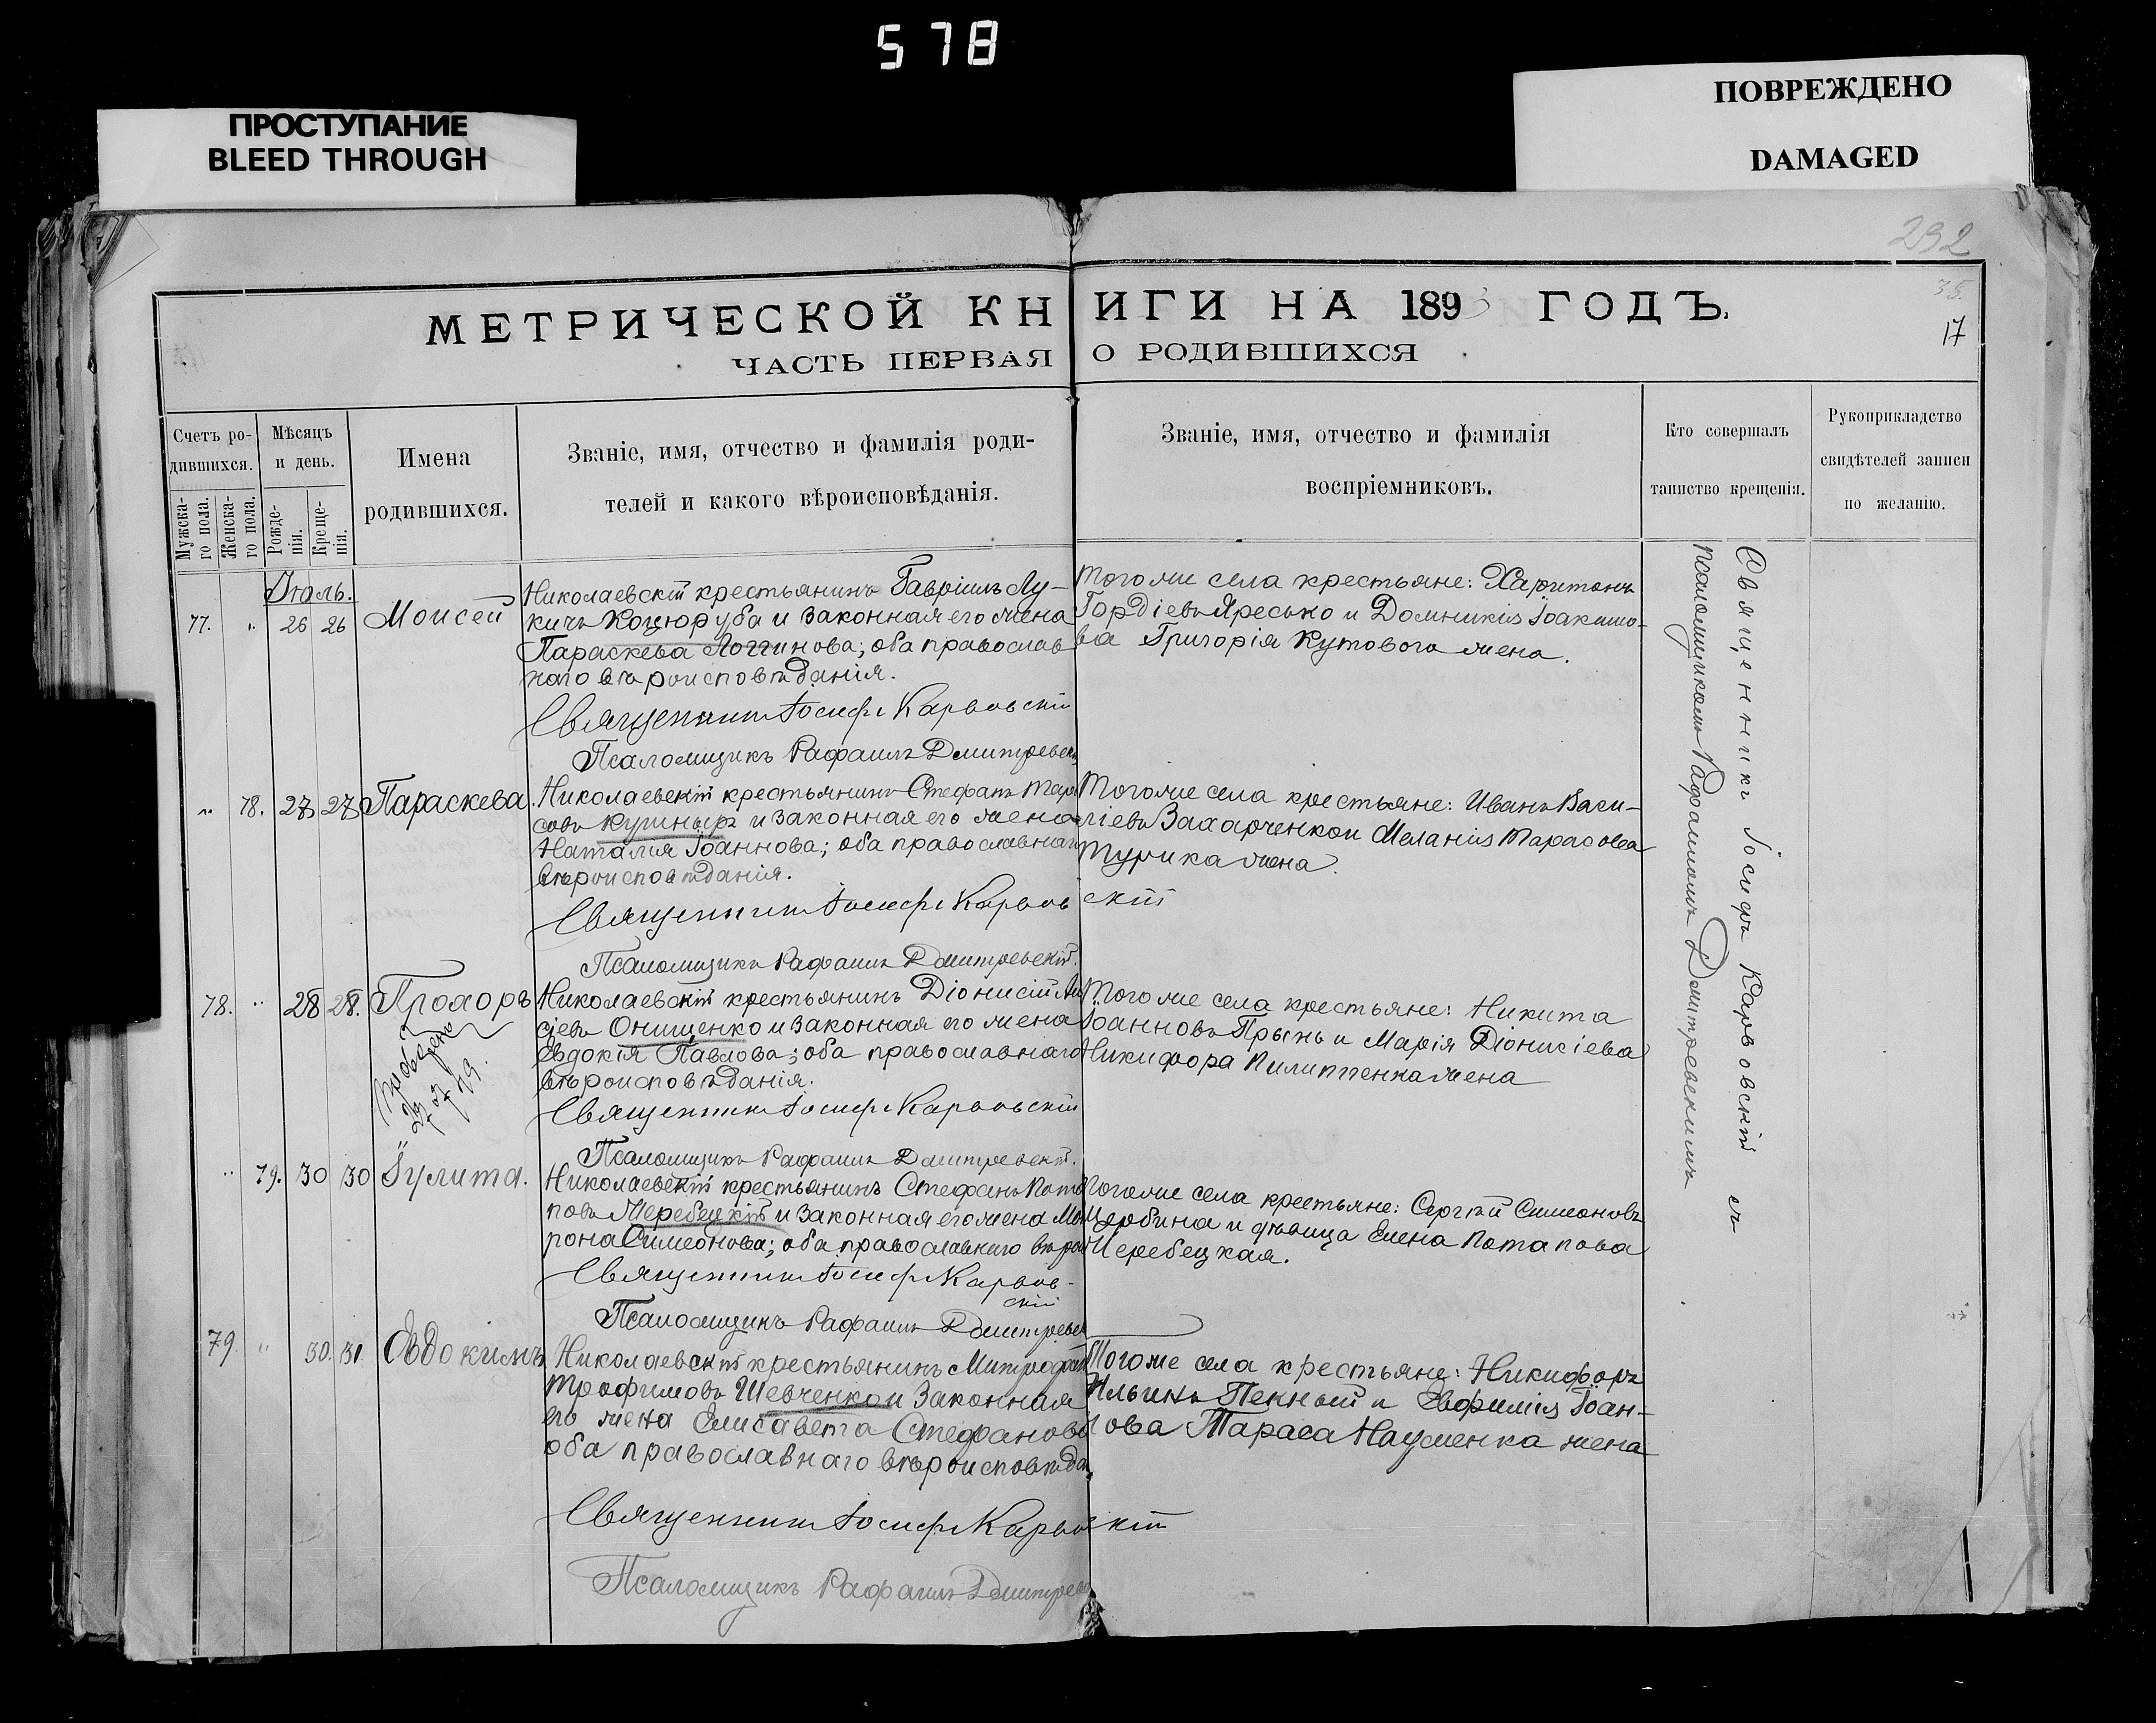 578
ПРОСТУПАНИЕ
BLEED THROUGH
ПОВРЕЖДЕНО
DAMAGED
232
35.
17
МЕТРИЧЕСКОЙ КНИГИ НА 1893 ГОДЪ.
ЧАСТЬ ПЕРВАЯ О РОДИВШИХСЯ
Счетъ ро-
дившихся.
Мужска-
го пола.
Женска-
го пола.
Мѣсяцъ
и день.
Рожде-
нія.
Креще-
нія.
Имена
родившихся.
Званіе, имя, отчество и фамилія роди-
телей и какого вѣроисповѣданія.
Званіе, имя, отчество и фамилія
воспріемниковъ.
Кто совершалъ
таинство крещенія.
Рукоприкладство
свидѣтелей записи
по желанію.
Іюль.
77. " 26 26 Моисей
Николаевскій крестьянинъ Гавріилъ Лу-
кичъ Коцюруба и законная его жена
Параскева Логгинова; оба православ
наго вѣроисповѣданія.
Священникъ Іосифъ Карвовскій
Псаломщикъ Рафаилъ Дмитревскі
Того же села крестьяне: Харитонъ
Гордіевъ Яресько и Домникія Іоакимо-
ва Григорія Кутового жена.
" 78. 27 27 Параскева.
Николаевскій крестьянинъ Стефанъ Тара
совъ Кушныръ и законная его жена
Наталия Іоаннова; оба православнаго
вѣроисповѣданія.
Священникъ Іосифъ Карвовскій
Псаломщикъ Рафаилъ Дмитревскій.
Того же села крестьяне: Иванъ Васи-
ліевъ Захарченко и Меланія Тарасова
Турика жена.
78. " 28 28. Прохоръ
27 7 29.
Николаевскій крестьянинъ Діонисій
сіевъ Онищенко и законная его жена
Евдокія Павлова; оба православнаго
вѣроисповѣданія.
Священникъ Іосифъ Карвовскій
Псаломщикъ Рафаилъ Дмитревскій.
Того же села крестьяне: Никита
Іоанновъ Прынь и Марія Діонисіева
Никифора Пилипенка жена
" 79. 30 30 Іулита.
Николаевскій крестьянинъ Стефанъ Пота
повъ Жеребецкій и законная его жена Мат
рона Симеонова; оба православнаго вѣрои
Священникъ Іосифъ Карвов-
скій
Псаломщикъ Рафаилъ Дмитревск
Того же села крестьяне: Сергій Симеоновъ
Щербина и дѣвица Елена Потапова
Жеребецкая.
79. " 30. 31. Евдокимъ
Николаевскій крестьянинъ Митрофанъ
Трофимовъ Шевченко и законная
его жена Елисавета Стефанова
оба православнаго вѣроисповѣда
Священникъ Іосифъ Карвовскій
Псаломщикъ Рафаилъ Дмитревс
Того же села крестьяне: Никифоръ
Ильинъ Пекный и Евфимія Іоан-
нова Тараса Науменка жена
Священникъ Іосифъ Карвовскій съ
псаломщикомъ Рафаиломъ Дмитревскимъ